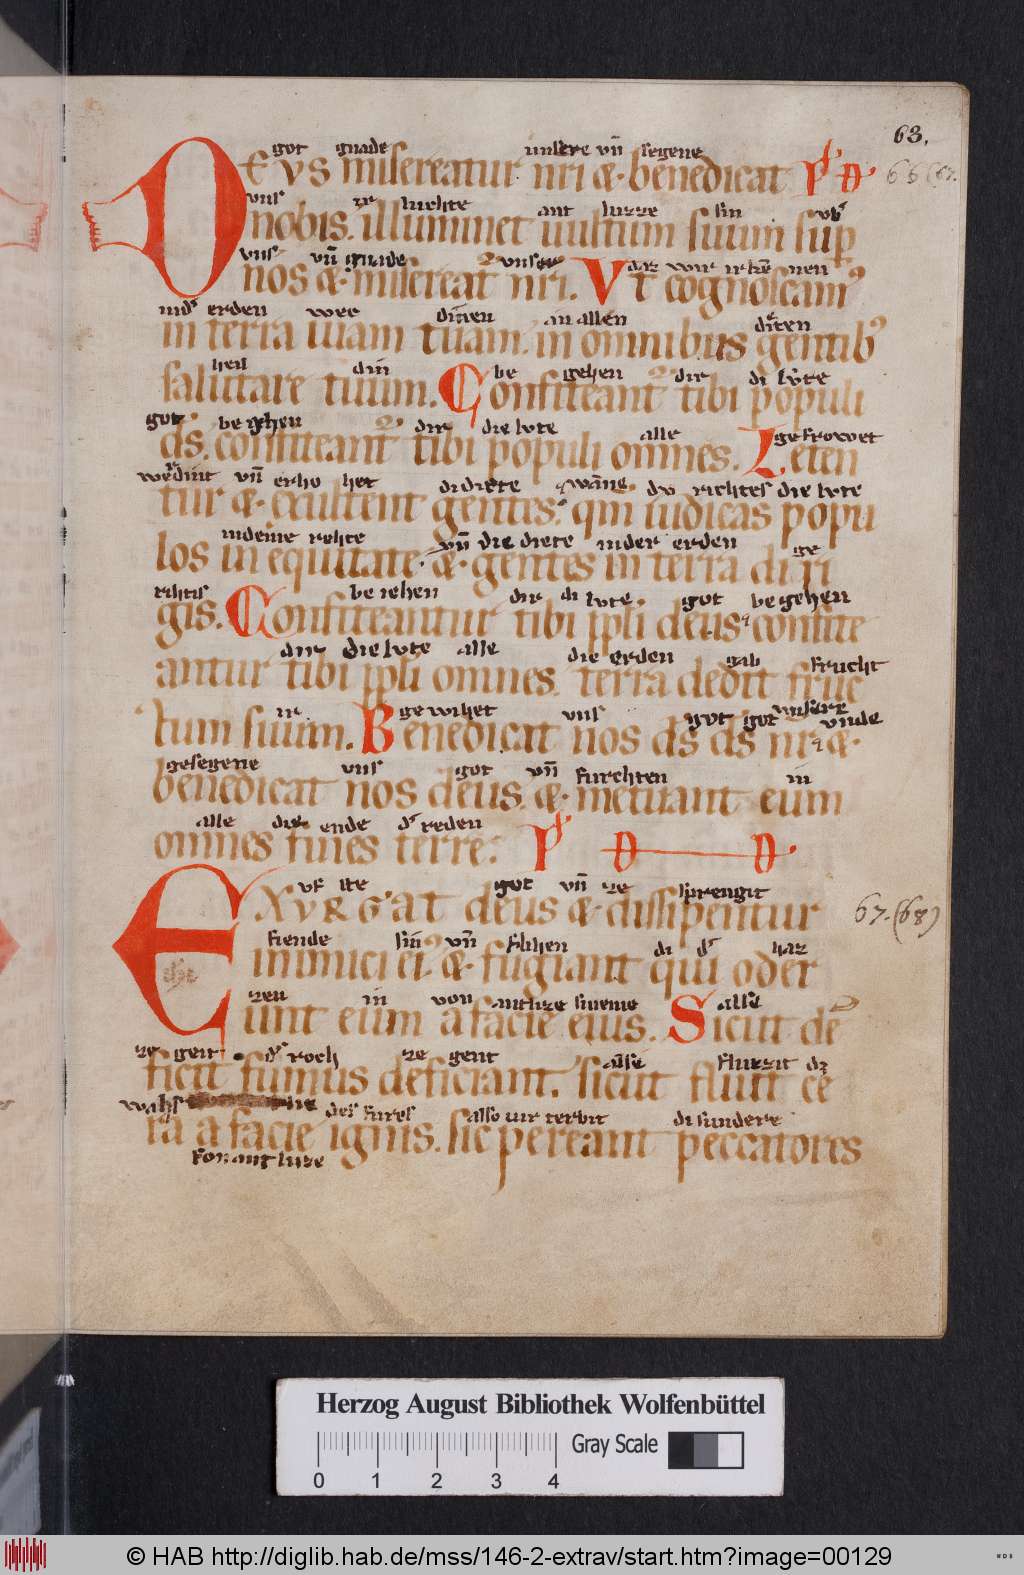 63.
got gnade unsere vn̄ segene
DEVS misereatur nr̄i & benedicat
66(67.
vns ir luchte ant luzze sin vb᷒
nobis. illuminet uultum suum sup̄
vns vn̄ gnade vnser daz wir irkē nen
nos & misereat᷒ nr̄i. Vt cognoscam᷒
ind᷒ erden wec dinen in allen diten
in terra uiam tuam. in omnibus gentib᷒
heil din be gehen dir di lvte
salutare tuum. Confiteant᷒ tibi populi
got be gehen dir die lvte alle gefrowet
ds̄. confiteant᷒ tibi populi omnes. Leten
werdint vn̄ erho het di diete wāne dv richtes die lvte
tur & exultent gentes. qm̄ iudicas popu
indeine rehte vn̄ die diete inder erden ge
los in equitate. & gentes in terra diri
richtis be iehen dir di lvte got be gehen
gis. Confiteantur tibi ppli deus confite
dir die lvte alle die erden gab frucht
antur tibi ppli omnes. terra dedit fruc
ir ge wihet vns got got vnsere vnde
tum suum. Benedicat nos ds̄ ds̄ nr̄ &
gesegene vns got vn̄ furchten in
benedicat nos deus. & metuant eum
alle die ende d᷒ reden
omnes fines terre.
vf ste got vn̄ ze sprengit
EXVRGAT deus & dissipentur
67.(68)
fiende sin vn̄ flihen di d᷒ haz
inimici ei᷒. & fugiant qui oder
zen in von antlize sineme alse
unt eum a facie eius. Sicut de
ze geit d᷒ roch ze gent alse fluzzit dz
ficit fumus deficiant. sicut fluit ce
wahs des fures also uir terbit di sundere
ra a facie ignis. sic pereant peccatores
fon ant luze
Herzog August Bibliothek Wolfenbüttel
Gray Scale
0 1 2 3 4
© HAB http://diglib.hab.de/mss/146-2-extrav/start.htm?image=00129